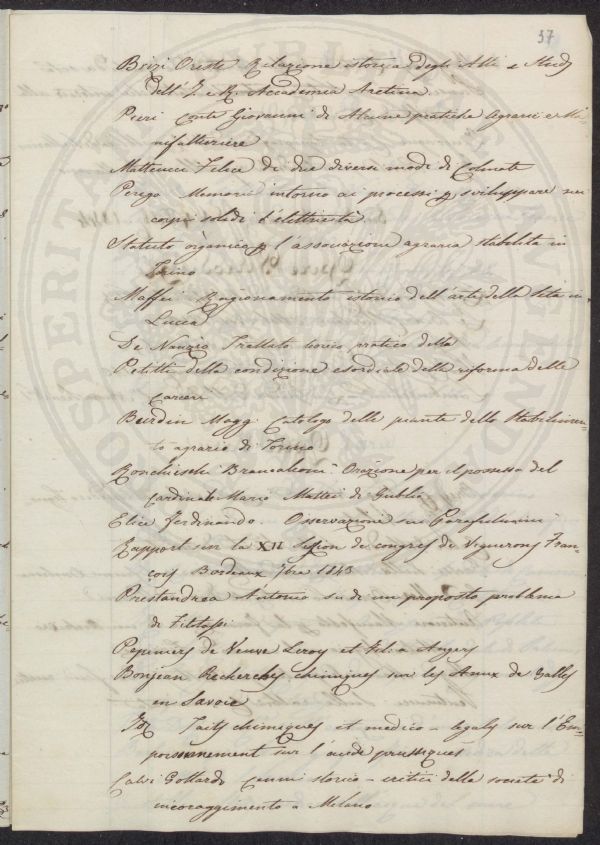 37
Brizi Oreste Relazione istorica degli Atti e Studj
dell'I. e R. Accademia Aretina
Pieri Conte Giovanni di Alcune pratiche agrarie e Ma-
nifatturiere
Matteucci Felice di due diversi modi di Colmate
Perego Memoria intorno ai processi p sviluppare nei
corpi solidi l'elettricità
Statuto organico p l'associazione agraria stabilita in
Torino
Maffei Ragionamento istorico dell'arte della Seta in
Lucca
De Nanzio Trattato teorico pratico della
Petitti della condizione esordiale della riforma delle
Carceri
Burdin Magg. Catalogo delle piante dello Stabilimen-
to agrario di Torino
Ronchini Brancaleoni Orazione per il possesso del
Cardinale Mario Mattei di Gubbio
Elice Ferdinando. Osservazioni sui Parafulmini
Rapport sur la XII Session de congres de Vignerons Fran-
çois Bordeaux 7bre 1843
Prestandrea Antonio su di un proposto problema
di Fitotassi
Pepiniers de Veuve Leroy et fils a Angers
Bonjean Recherches chimiques sur les Eaux de
en Savoie
Faits chimiques et medico-legals sur l'Em-
poisonnement sur l'acide prussiques
Calvi Gottardo Cenni storico-critici della società di
incoraggimento a Milano